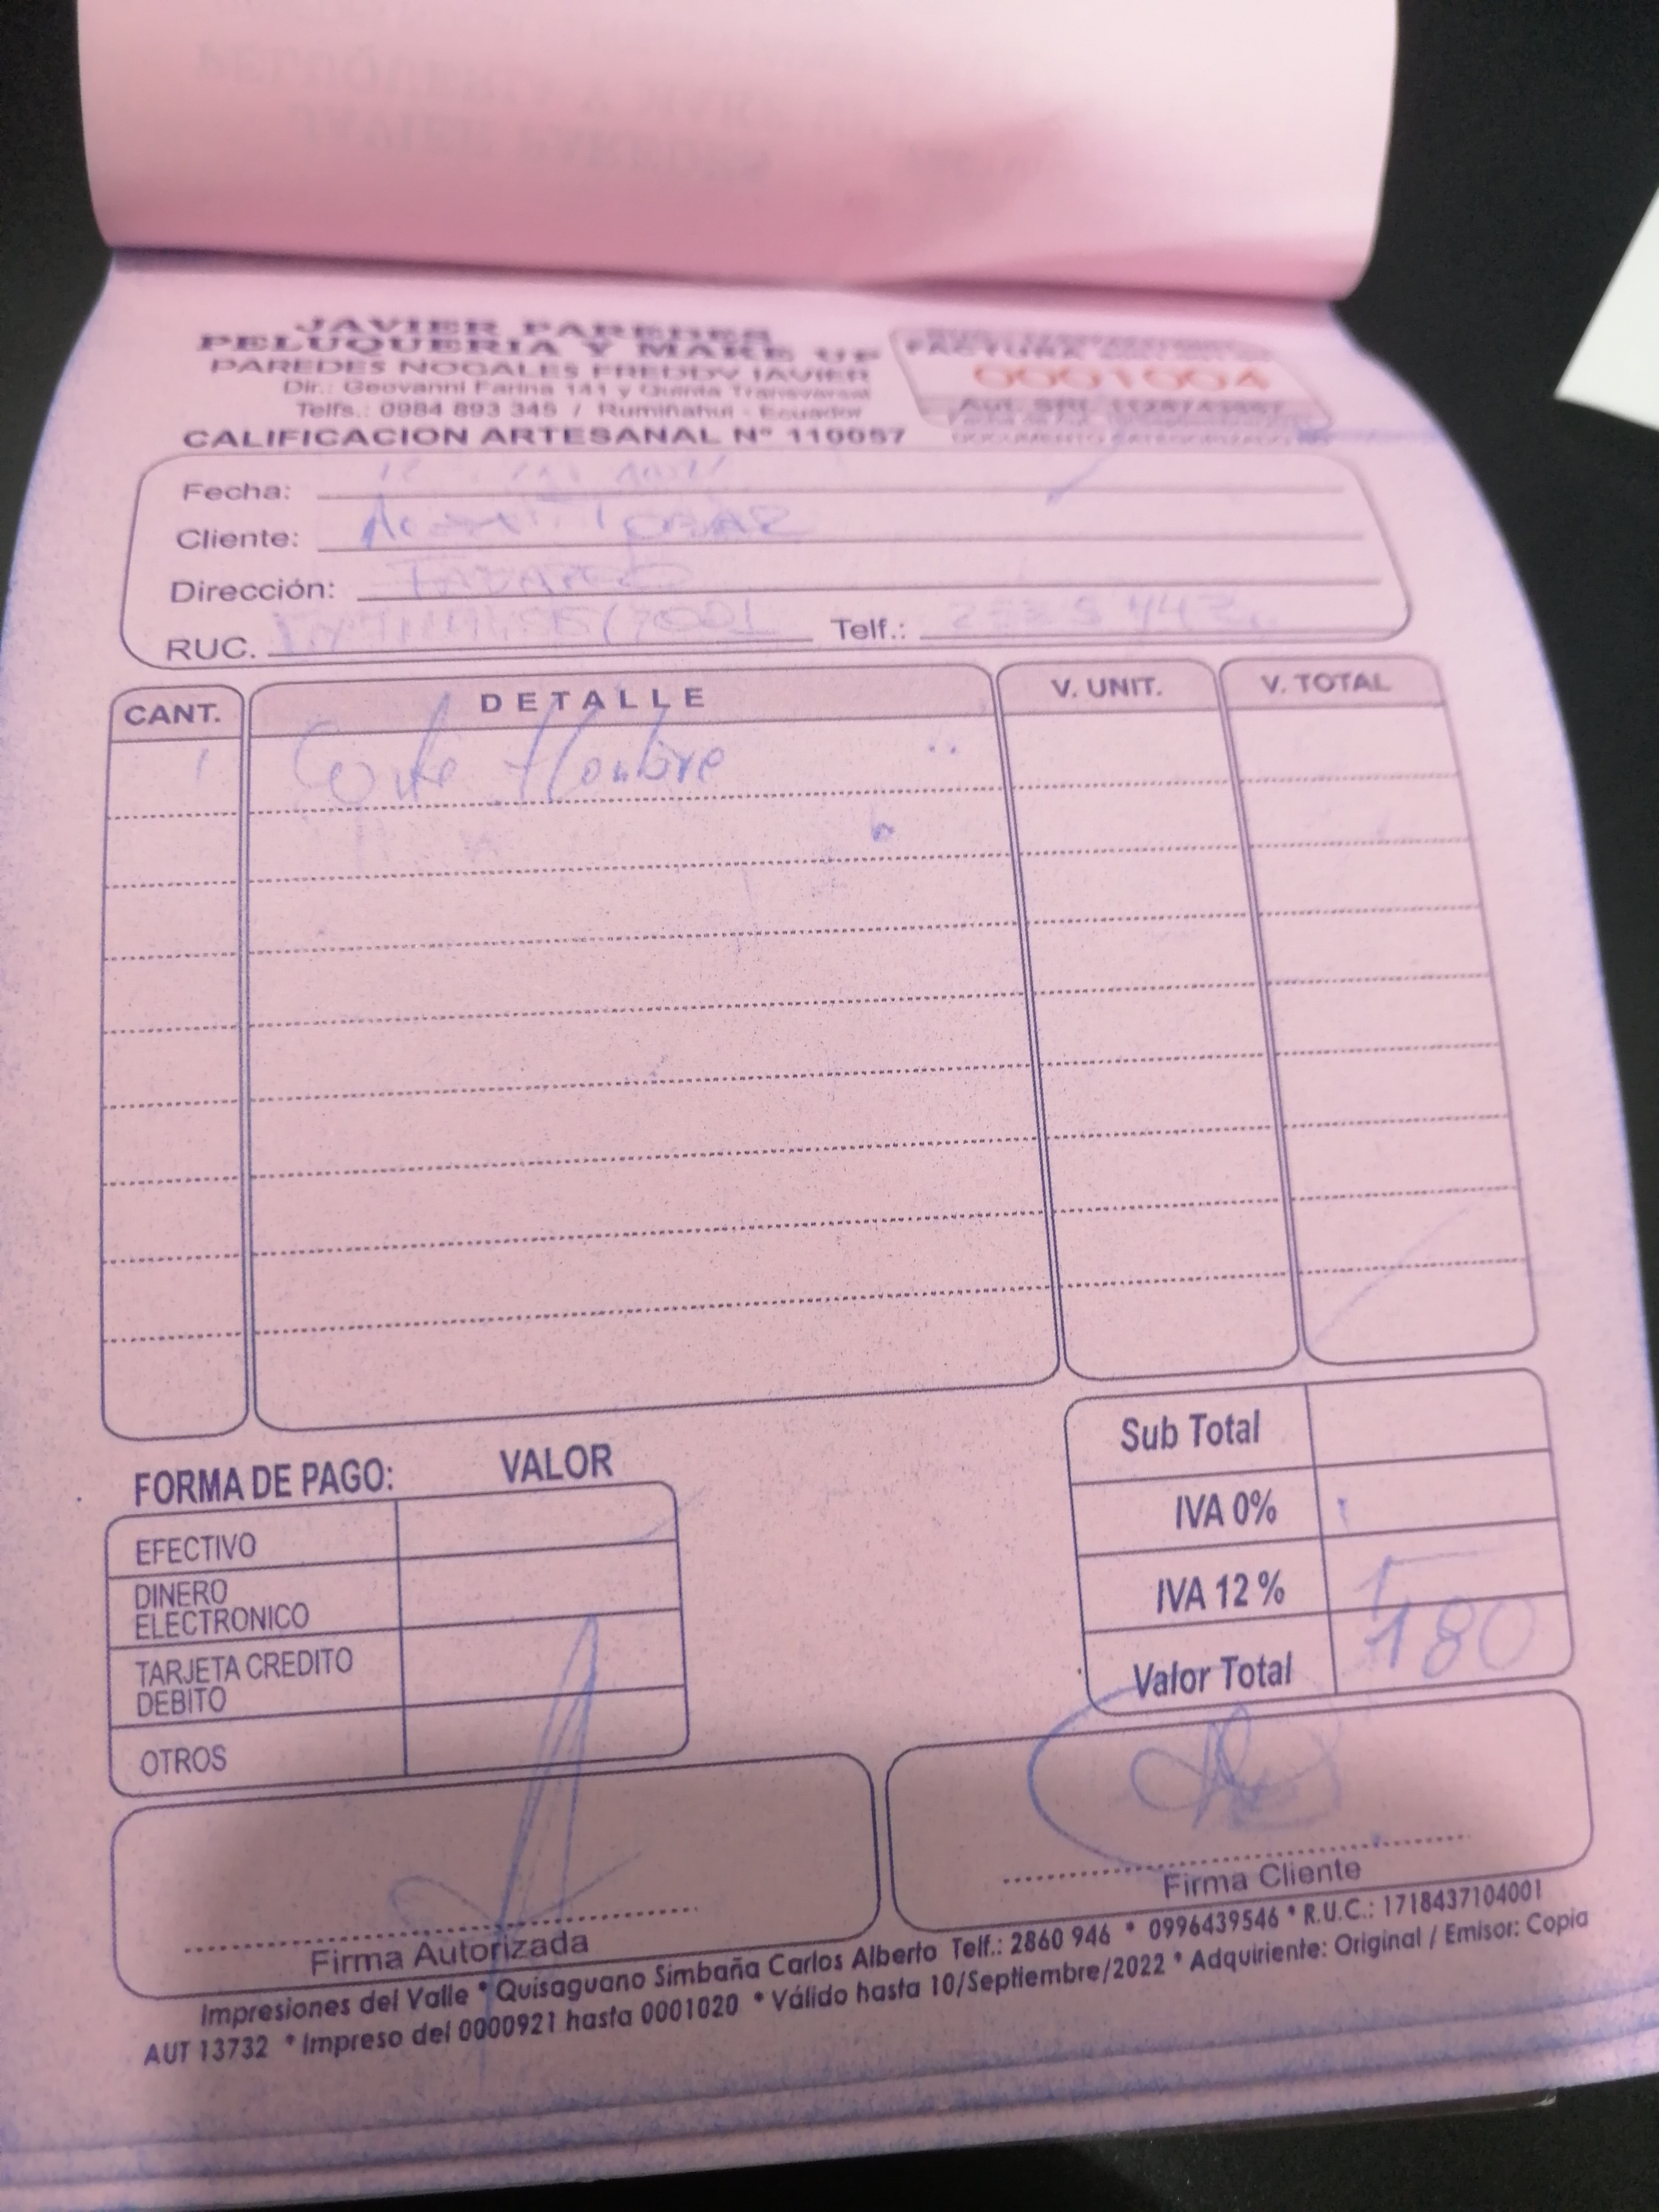 JAVIER PAREDES
PELUQUERIA Y MAKE UP
PAREDES NOGALES FREDDY JAVIER
Dir.: Geovanni Farina 141 y Quinta Transversal
Telfs.: 0984 893 345 / Rumiñahui - Ecuador
CALIFICACION ARTESANAL Nº 110057
FACTURA
0001004
Aut. SRI
Fecha:
Cliente: TOBAR
Dirección:
RUC. Telf.:
CANT. DETALLE V. UNIT. V. TOTAL
1 Corte Hombre
FORMA DE PAGO: VALOR
EFECTIVO
DINERO
ELECTRONICO
TARJETA CREDITO
DEBITO
OTROS
Sub Total
IVA 0%
IVA 12 %
Valor Total 180
Firma Autorizada
Firma Cliente
Impresiones del Valle * Quisaguano Simbaña Carlos Alberto Telf.: 2860 946 * 0996439546 * R.U.C.: 1718437104001
AUT 13732 * Impreso del 0000921 hasta 0001020 * Válido hasta 10/Septiembre/2022 * Adquiriente: Original / Emisor: Copia